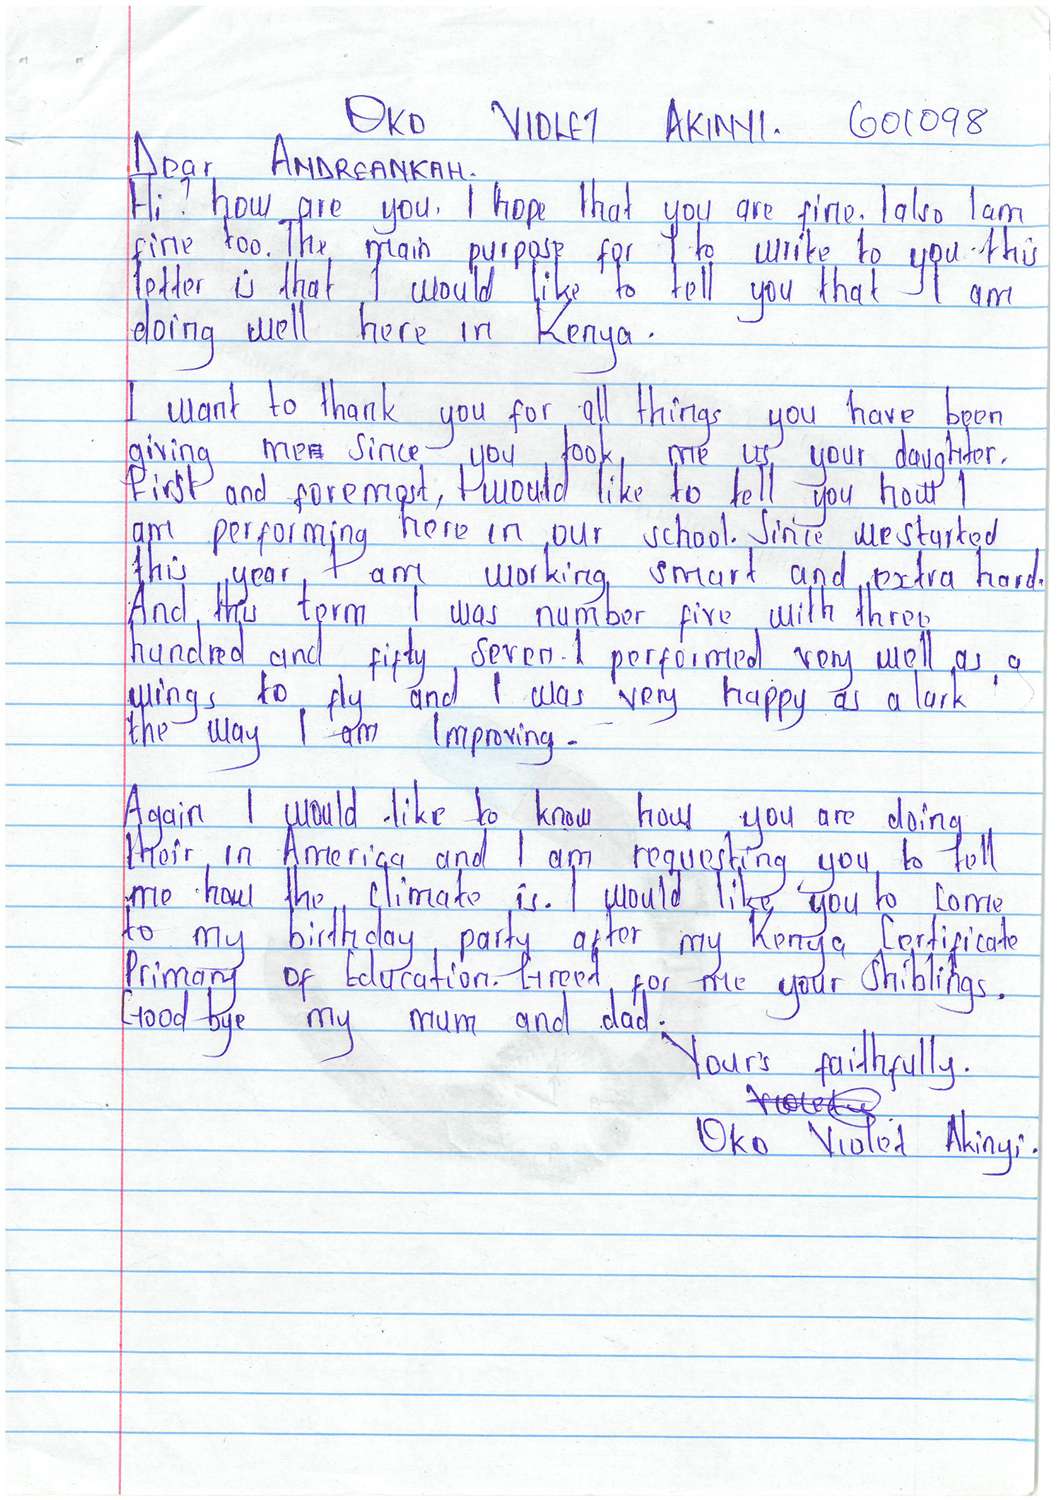 OKO VIOLET AKINYI. G01098
Dear ANDREANKAH.
Hi? how are you. I hope that you are fine. I also I am
fine too. The main purpose for I to write to you this
letter is that I would like to tell you that I am
doing well here in Kenya.
I want to thank you for all things you have been
giving me since you took me us your daughter.
First and foremost, I would like to tell you how I
am performing here in our school. Since we started
this year I am working smart and extra hard.
And this term I was number five with three
hundred and fifty seven. I performed very well as a
wings to fly and I was very happy as a lark
the way I am Improving.
Again I would like to know how you are doing
their in America and I am requesting you to tell
me how the climate is. I would like you to come
to my birthday party after my Kenya Certificate
Primary of Education. Greed for me your Shiblings.
Good bye my mum and dad.
Your's faithfully.
Oko Violet Akinyi.